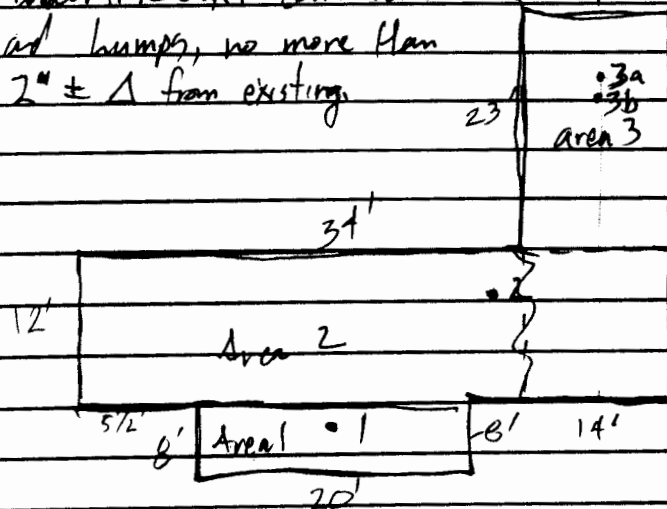 and humps, no more than
2" ± Δ from existing.
3a
3b
23'
area 3
34'
2
12'
Area 2
5 1/2'
8'
Area 1
1
8'
14'
20'